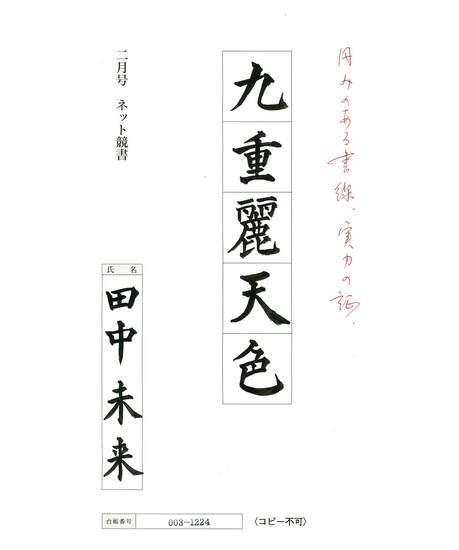 円みのある書線、実力の証.
九重麗天色
二月号 ネット競書
氏名
田中未来
台帳番号 003-1224 〈コピー不可〉